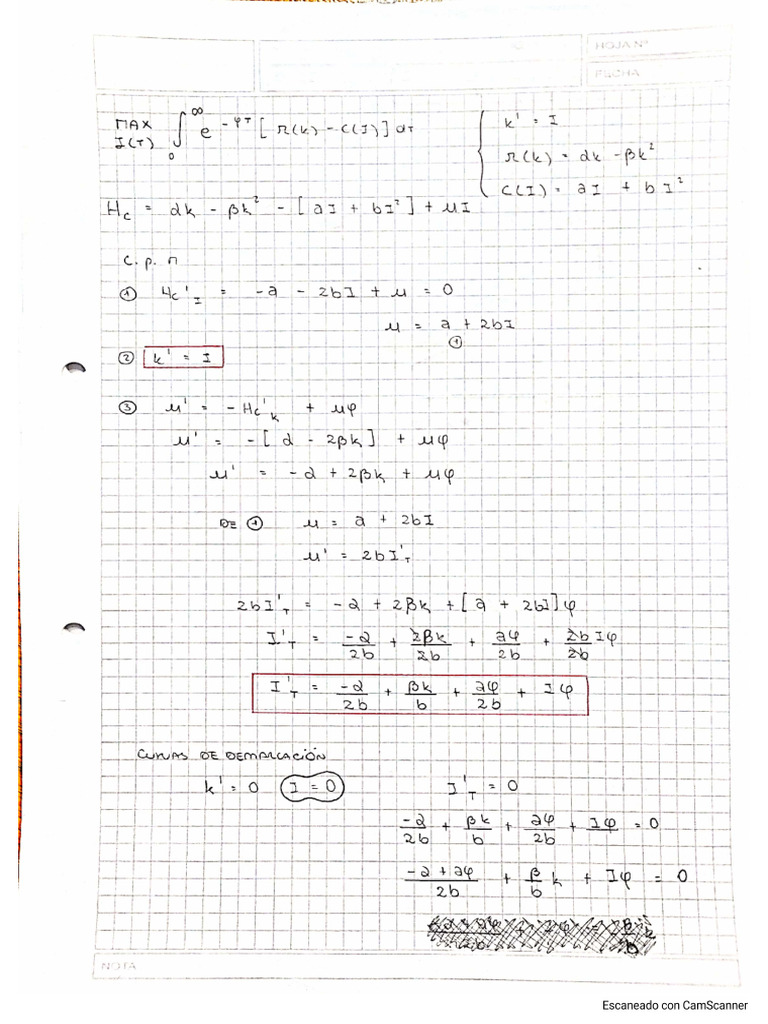 HOJA Nº
FECHA
MAX I(T) ∫₀^∞ e^{-φT} [π(k) - C(I)] dT
k' = I
π(k) = αk - βk²
C(I) = aI + bI²
Hc = αk - βk² - [aI + bI²] + μI
C.P.M
① Hc'_I = -a - 2bI + μ = 0
μ = a + 2bI
①
② k' = I
③ μ' = -Hc'_k + μφ
μ' = -[α - 2βk] + μφ
μ' = -α + 2βk + μφ
DE ① μ = a + 2bI
μ' = 2bI'_T
2bI'_T = -α + 2βk + [a + 2bI]φ
I'_T = -α/2b + 2βk/2b + aφ/2b + 2bIφ/2b
I'_T = -α/2b + βk/b + aφ/2b + Iφ
CURVAS DE DEMARCACIÓN
k' = 0 I = 0
I'_T = 0
-α/2b + βk/b + aφ/2b + Iφ = 0
(-α + aφ)/2b + β/b k + Iφ = 0
NOTA
Escaneado con CamScanner